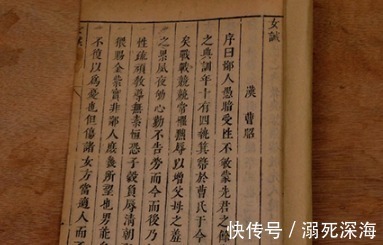 女誡
漢 曹昭
序曰鄙人愚暗受性不敏蒙先君之
之典訓年十有四執箕帚於曹氏于今
矣戰戰兢兢常懼黜辱以增父母之羞
之累夙夜劬心勤不告勞而今而後乃
性疏頑教導無素恒恐子穀負辱清朝
猥賜金紫實非鄙人庶幾所望也男能
不復以爲憂也但傷諸女方當適人而不
女誡
快传号 / 溺死深海